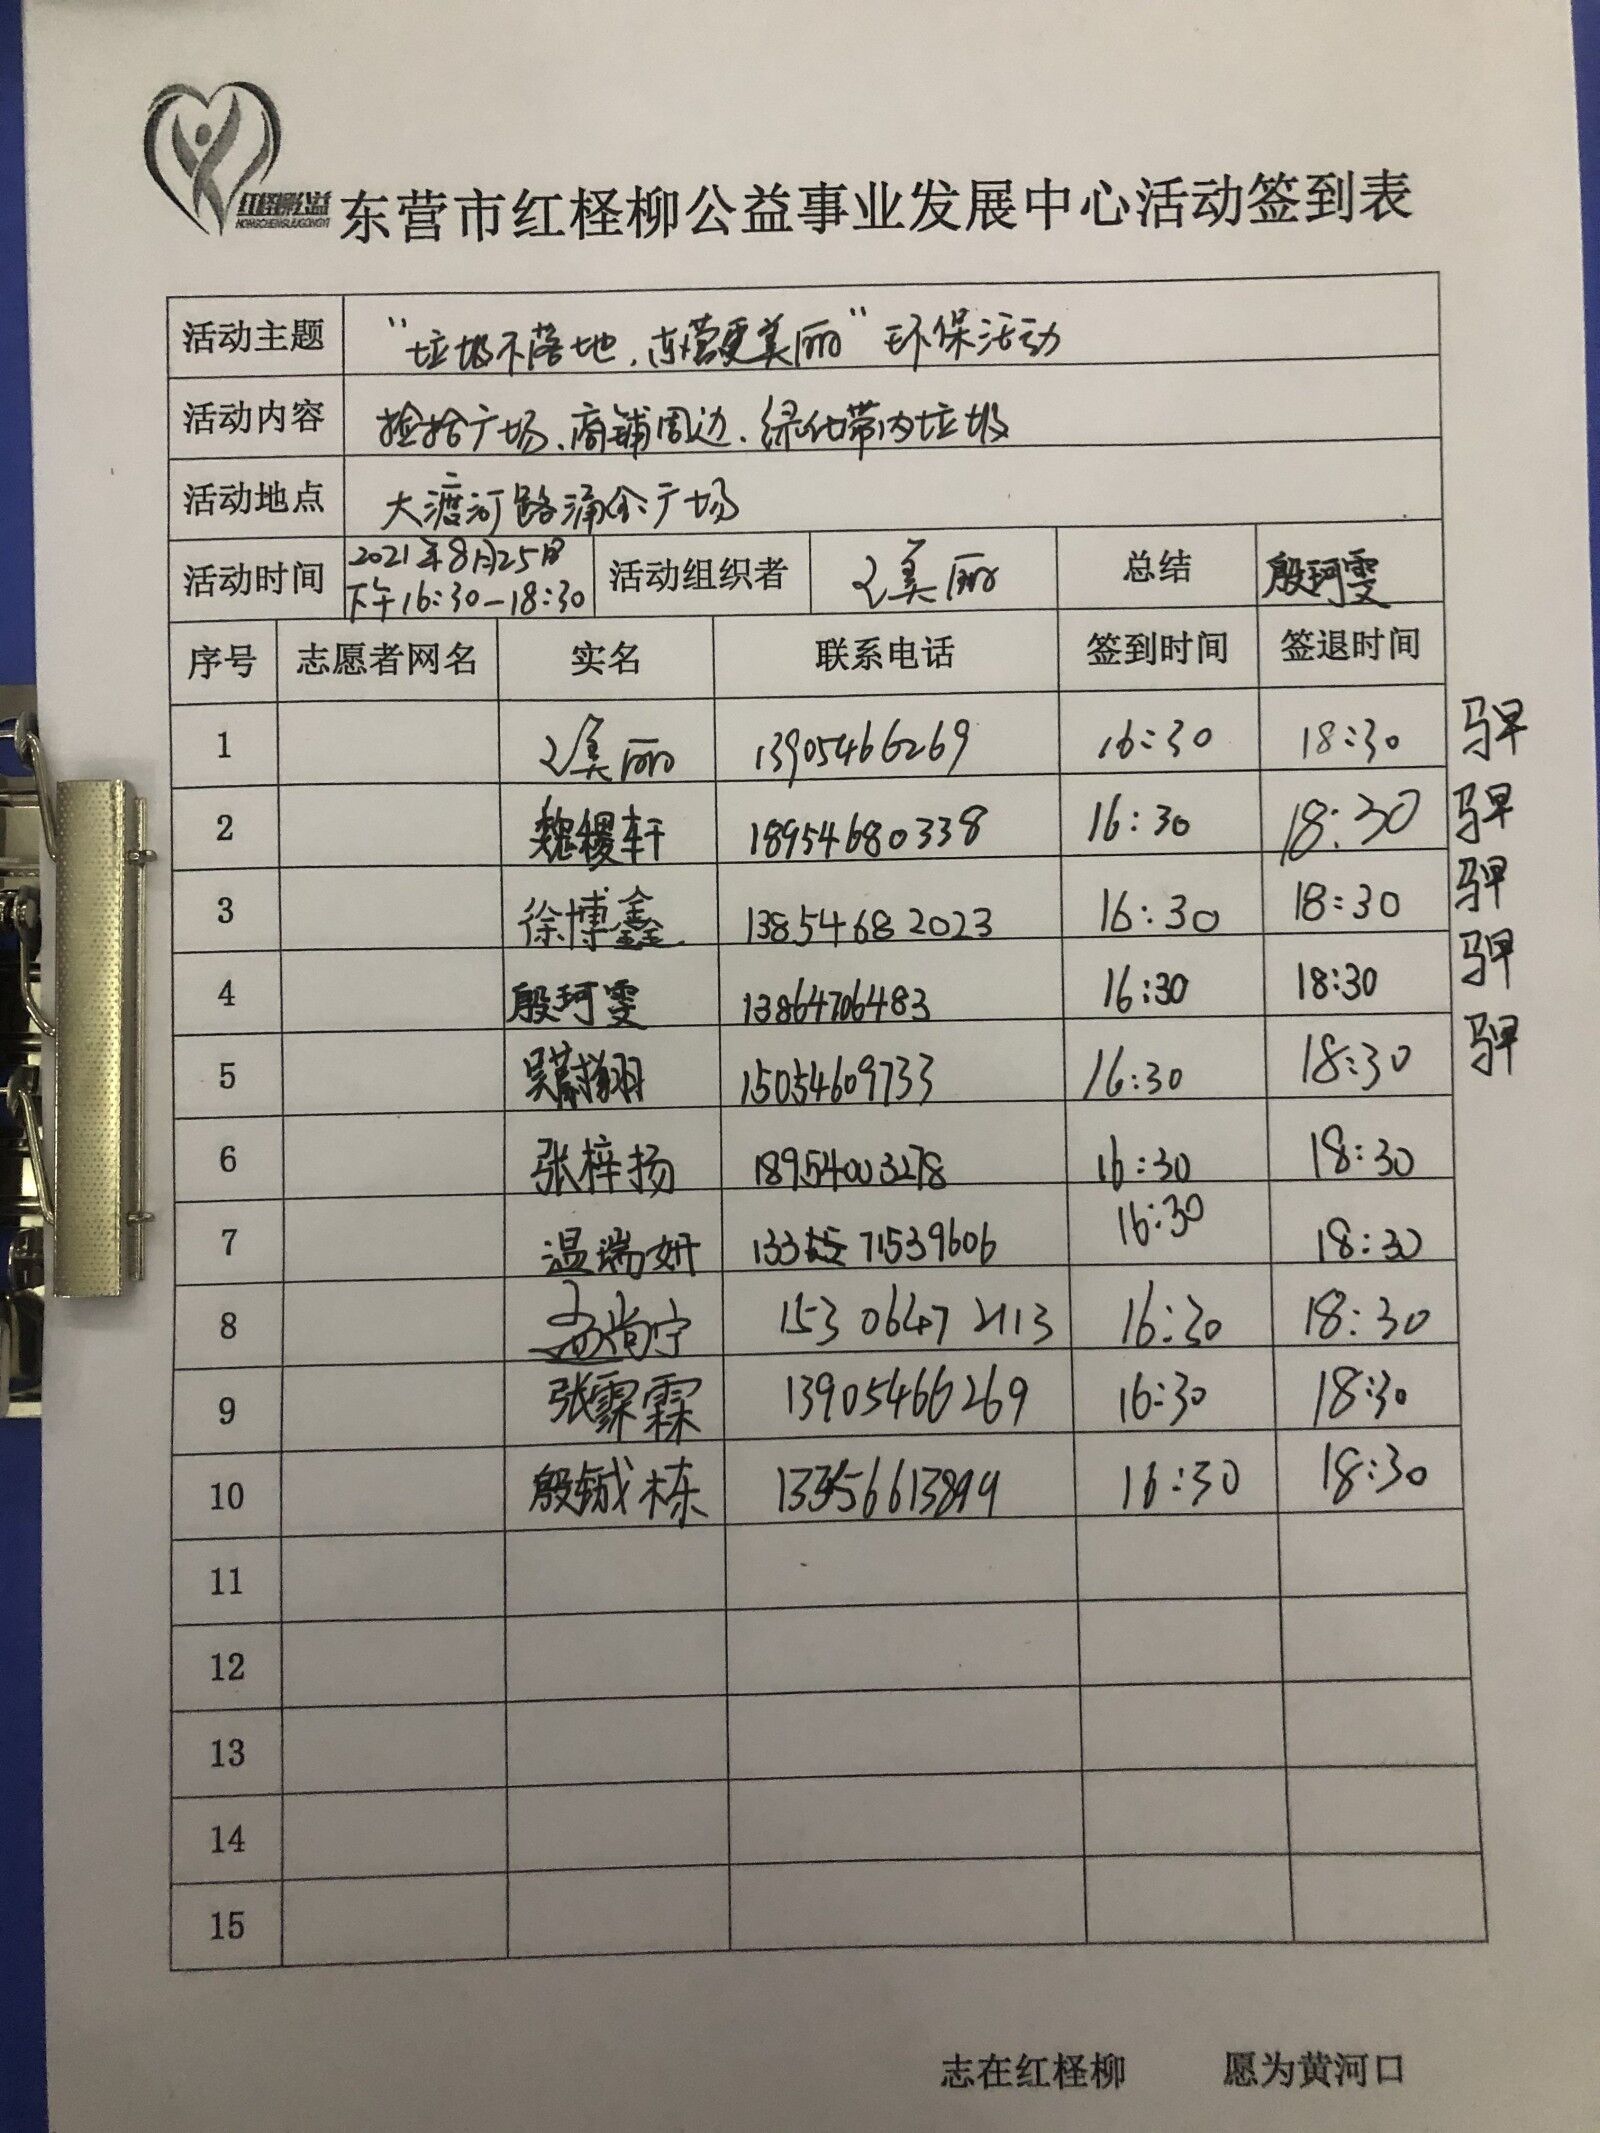 红柽柳公益
东营市红柽柳公益事业发展中心活动签到表
活动主题 “垃圾不落地,东营更美丽”环保活动
活动内容 捡拾广场、商铺周边、绿化带内垃圾
活动地点 大渡河路涌金广场
活动时间 2021年8月25日
下午16:30—18:30 活动组织者 美丽 总结 殷珂雯
序号 志愿者网名 实名 联系电话 签到时间 签退时间
1 美丽 13905466269 16:30 18:30
2 魏稷轩 18954680338 16:30 18:30
3 徐博鑫 13854682023 16:30 18:30
4 殷珂雯 13864706483 16:30 18:30
5 吴蔚翔 15054609733 16:30 18:30
6 张梓扬 18954003278 16:30 18:30
7 温端妍 71539606 16:30 18:30
8 尚宁 15306472113 16:30 18:30
9 张霖霖 13905466269 16:30 18:30
10 殷铖栋 16:30 18:30
11
12
13
14
15
志在红柽柳 愿为黄河口